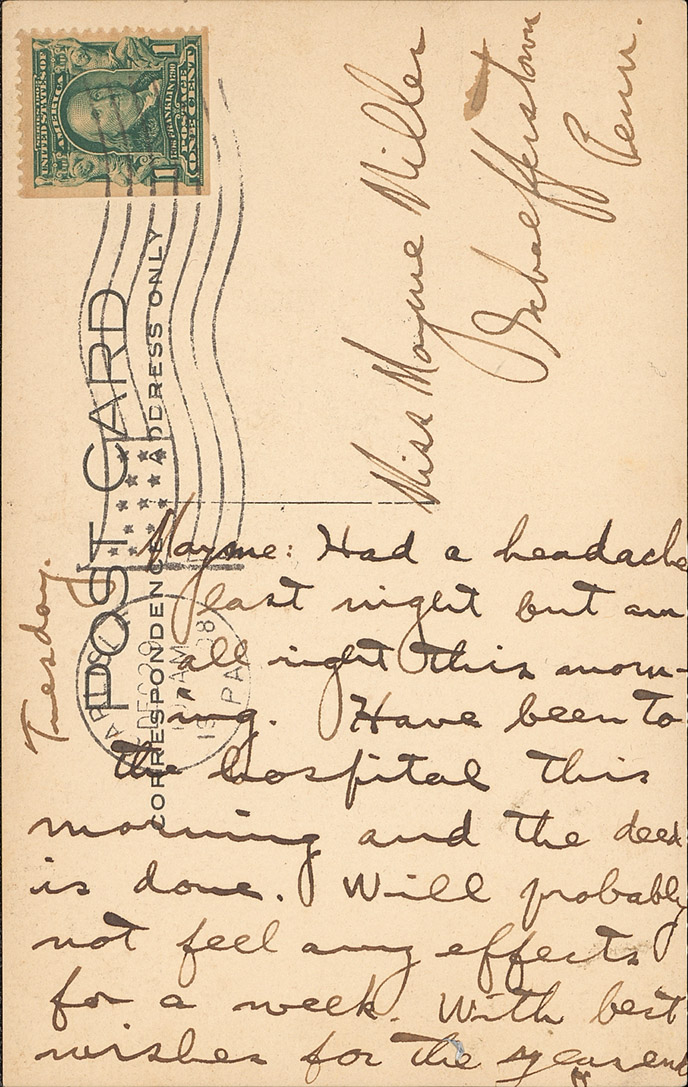 SERIES 1902
UNITED STATES OF AMERICA
1706 FRANKLIN 1790
POSTAGE
1 ONE CENT 1
POST CARD
CORRESPONDENCE ADDRESS ONLY
DEC 29
AM
1908
PA
Miss Mayme Miller
Schaefferstown
Penn.
Tuesday.
Mayme: Had a headache
last night but am
all right this morn-
ing. Have been to
the hospital this
morning and the deed
is done. Will probably
not feel any effects
for a week. With best
wishes for the